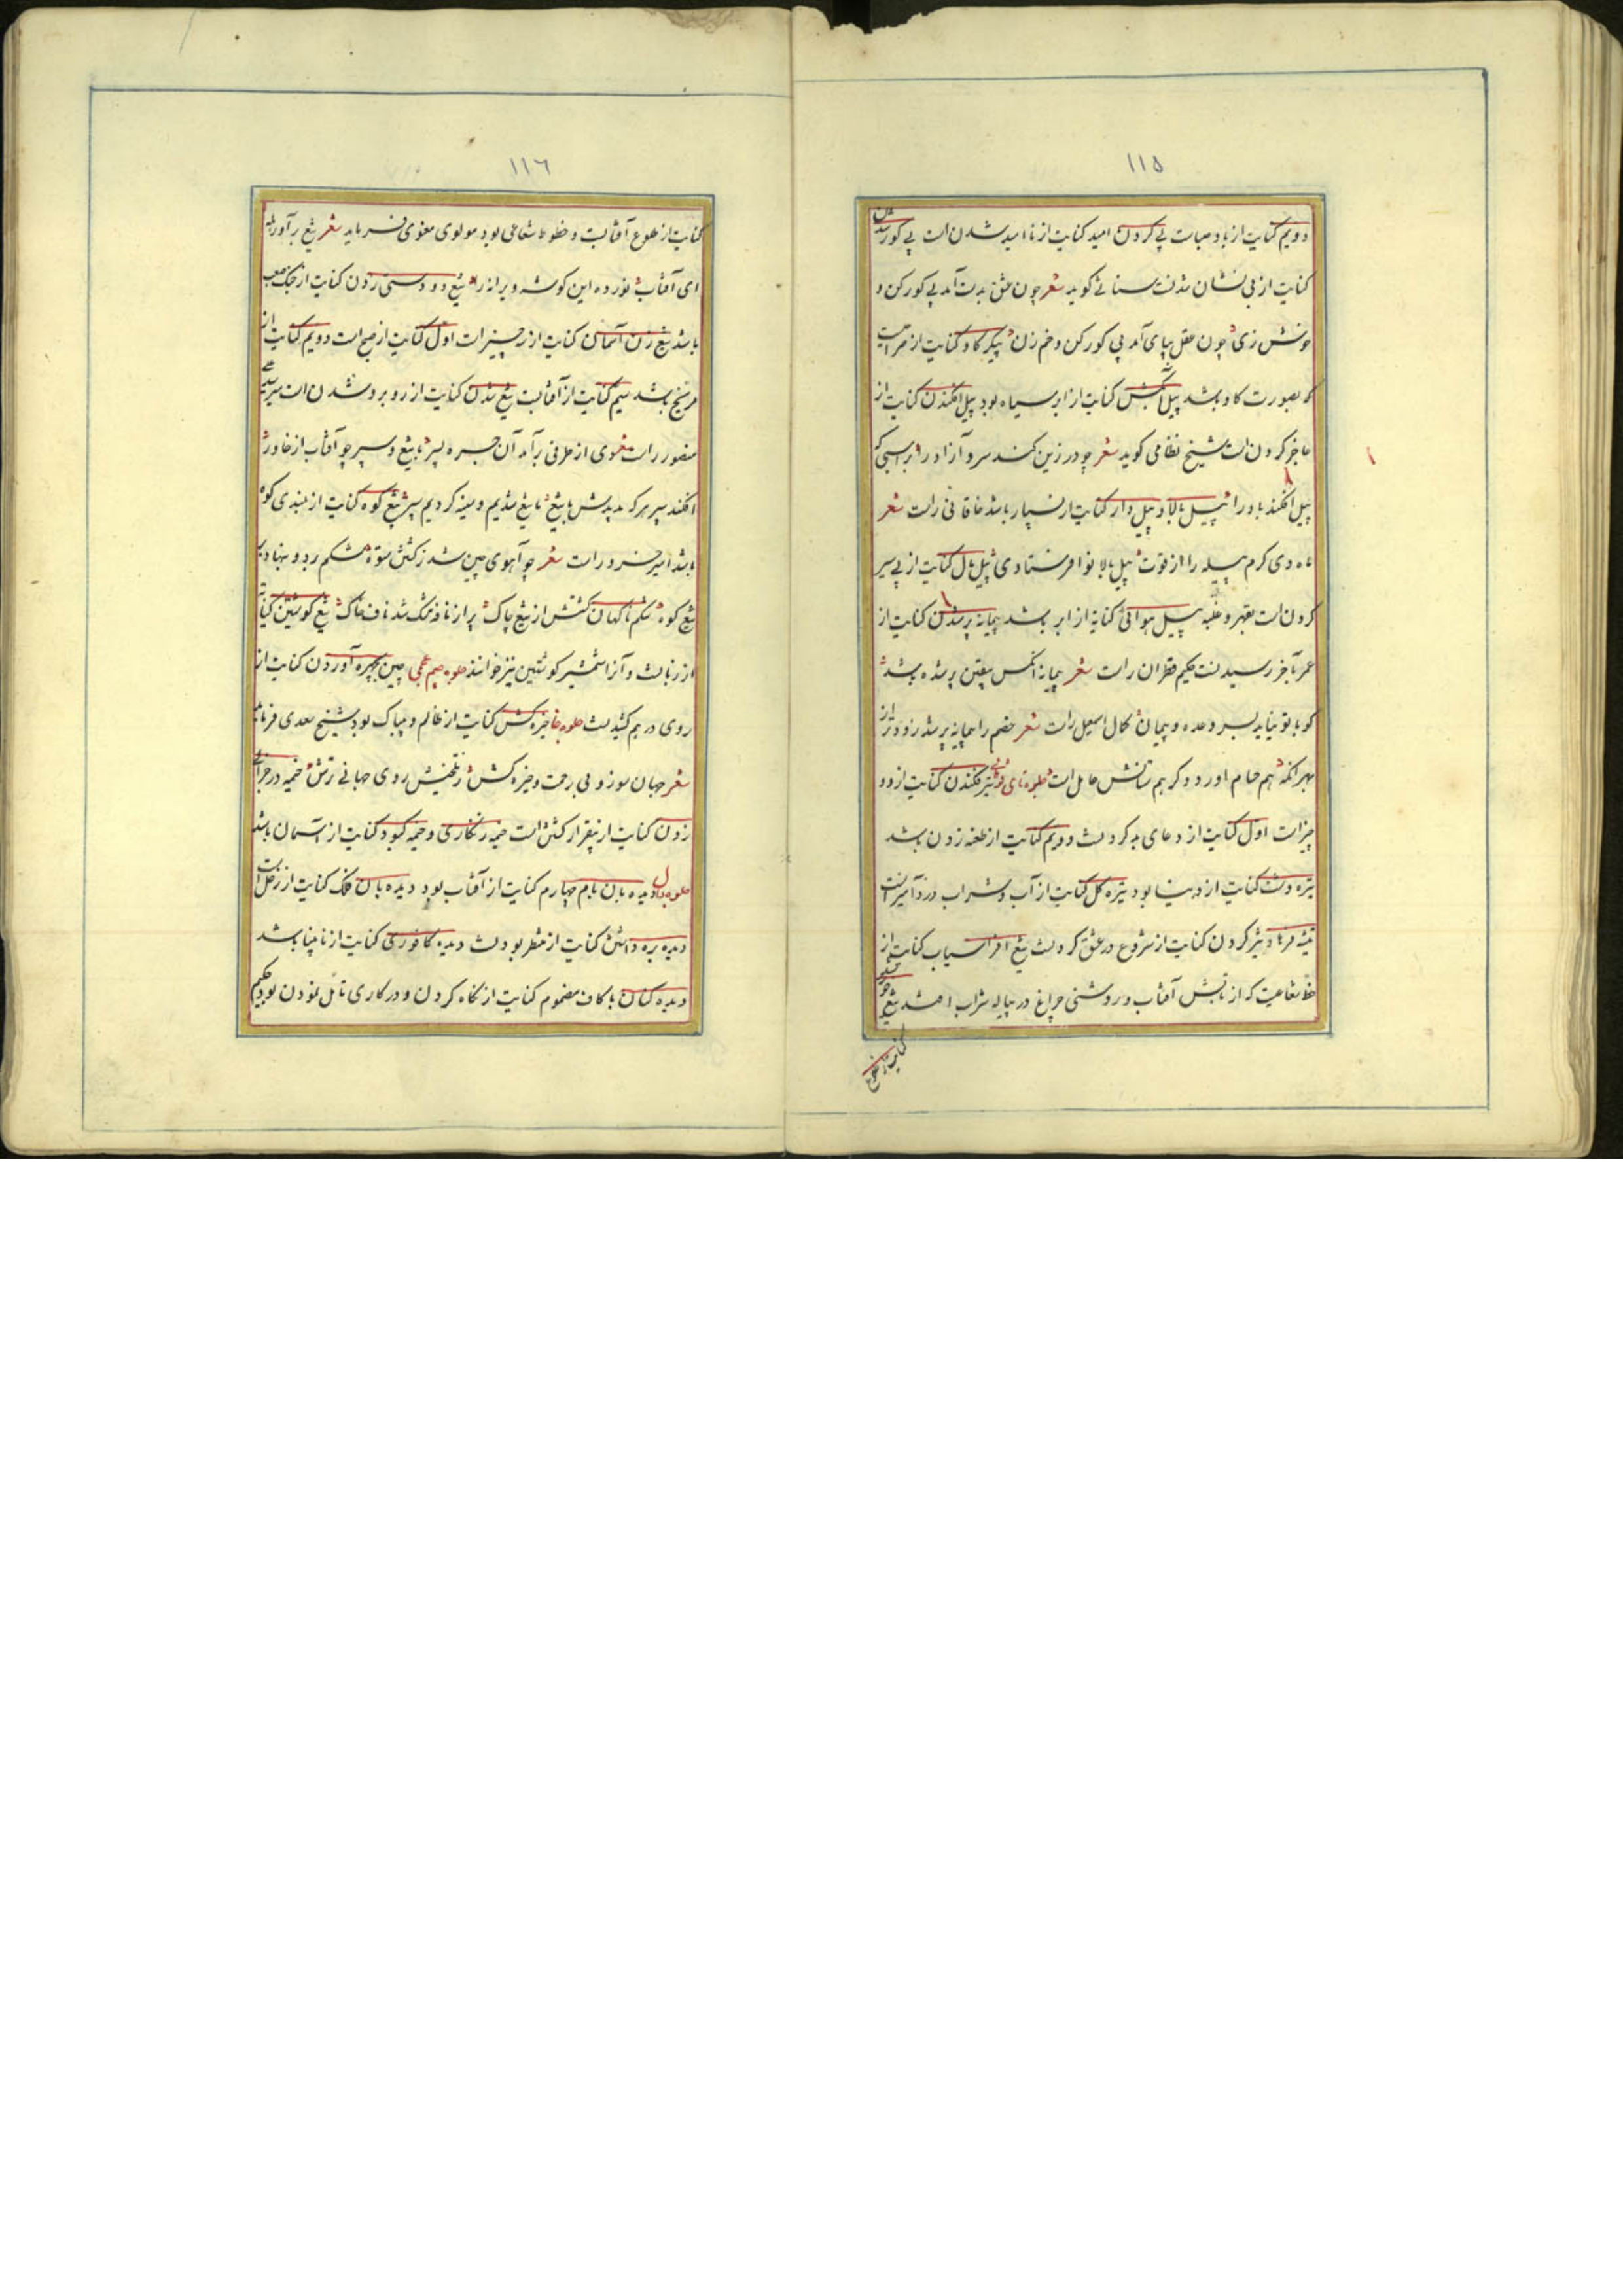 ١١٥
دویم کنایت از باد صباست پی کردن امید کنایت از ناامید شدن است پی کور شدن
کنایت از بی نشان شدنست سنائی کوید شعر چون عشق بدست آمد پی کور کن و
خوش زی چون عقل بپای آمد پی کور کن و خم زن پیکر کاو کنایت از صراحیست
که بصورت کاو باشد پیل کنایت از ابر سیاه بود پیل افکندن کنایت از
عاجز کردن است شیخ نظامی کوید شعر چو در زین کشد سرو آزاد را بر اسبی که
پیل افکند باد را پیل بالا و پیل وار کنایت از بسیار باشد خاقانی راست شعر
داد دی کرم پیله را از قوت پیل بالا نوا فرستادی پیل مال کنایت از پی سپر
کردن است بقهر و غلبه پیل هوائی کنایه از ابر باشد پیمانه پر شدن کنایت از
عمر بآخر رسیدنست حکیم قطران راست شعر پیمانه آنکس بیقین پر شده باشد
کو با تو نیاید بسر وعده و پیمان کمال اسمعیل راست شعر خصم را پیمانه پر شد زودتر از
بهر آنکه هم حسام آورد و کر هم سنانش حامل است جلوه تای فوقانی تیر فکندن کنایت از دو
چیزات اول کنایت از دعای بد کردنست دویم کنایت از طعنه زدن باشد
تیره دشت کنایت از دنیا بود تیره کل کنایت از آب و شراب درد آمیز است
تیشه فرهاد تیز کردن کنایت از شروع در عشق کردنست تیغ افراسیاب کنایت از
خط شعاعیست که از تابش آفتاب و روشنی چراغ در پیاله شراب افتد تیغ
کنایت از طلوع
١١٦
کنایت از طلوع آفتابست و خطوط شعاعی بود مولوی معنوی فرماید شعر تیغ برآور هله
ای آفتاب نور ده این کوشه ویرانه را تیغ دو دستی زدن کنایت از جنک صعب
باشد تیغ زن آسمان کنایت از چیز است اول کنایت از صبح است دویم کنایت از
مریخ باشد سیم کنایت از آفتابست تیغ شدن کنایت از روبرو شدن است میر
منصور راست مثنوی از طرفی برآمد آن جسر و پسر با تیغ و سپر چو آفتاب از خاور
افکند سپر هر که بدیدش با تیغ ما تیغ شدیم و سینه کردیم سپر تیغ کوه کنایت از بلندی کوه
باشد امیر خسرو راست شعر چو آهوی چین شد زکشتن ستوه شکم برد و بنهاد بر
تیغ کوه شکم ناکهان کشتش از تیغ چاک پر از نافه مشک شد ناف خاک تیغ کوشتین کنایه
از زبانست و آنرا شمشیر کوشتین نیز خوانند جلوه جیم عجمی چین بچهره آوردن کنایت از
روی درهم کشیدنست جلوه خا خیره کش کنایت از ظالم و بیباک بود شیخ سعدی فرماید
شعر جهان سوز و بی رحمت و خیره کش ز تلخیش روی جهانی ترش خیمه در خرابی
زدن کنایت از بیقرار کشتن است خیمه زنکاری و خیمه کبود کنایت از آسمان باشد
جلوه دال دیده بان بام چهارم کنایت از آفتاب بود دیده بان فلک کنایت از زحل است
دیده بره داشتن کنایت از منتظر بودنست دیده کافوری کنایت از نابینا باشد
دیده کنان با کاف مضموم کنایت از نکاه کردن و در کاری تامل نمودن بود حکیم